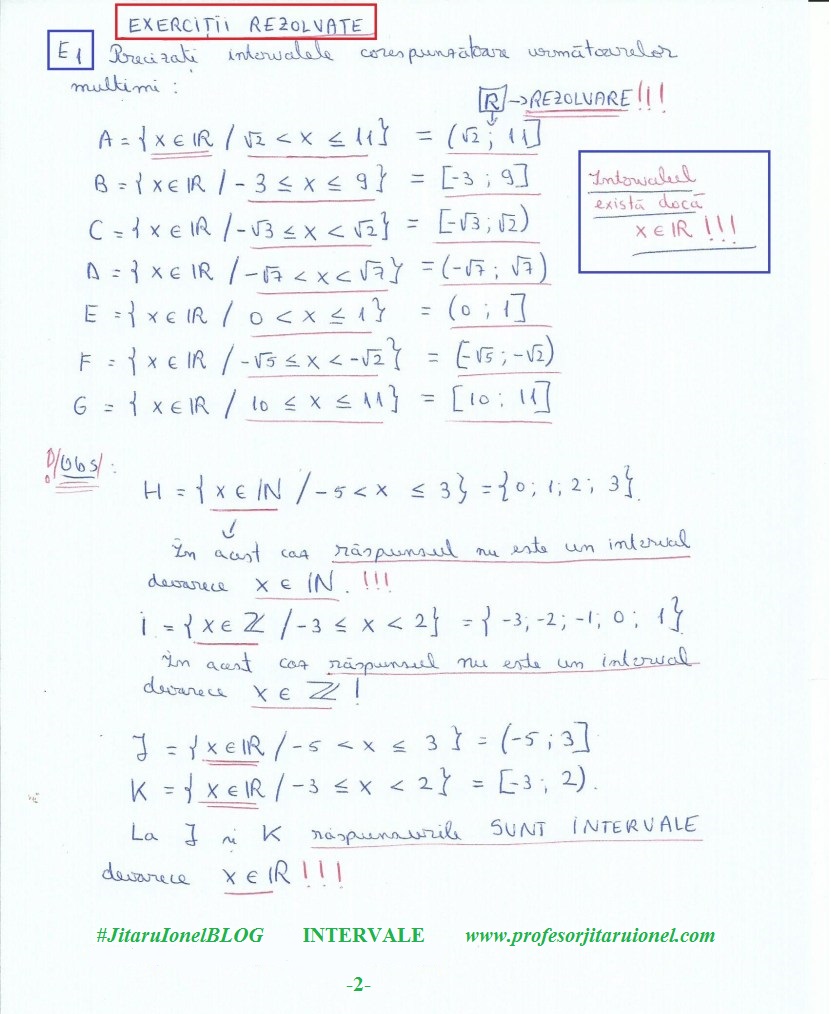 EXERCIȚII REZOLVATE
E1 Precizați intervalele corespunzătoare următoarelor
mulțimi :
R → REZOLVARE!!!
A = { x ∈ ℝ / √2 < x ≤ 11 } = (√2 ; 11]
B = { x ∈ ℝ / -3 ≤ x ≤ 9 } = [-3 ; 9]
C = { x ∈ ℝ / -√3 ≤ x < √2 } = [-√3 ; √2)
D = { x ∈ ℝ / -√7 < x < √7 } = (-√7 ; √7)
E = { x ∈ ℝ / 0 < x ≤ 1 } = (0 ; 1]
F = { x ∈ ℝ / -√5 ≤ x < -√2 } = [-√5 ; -√2)
G = { x ∈ ℝ / 10 ≤ x ≤ 11 } = [10 ; 11]
Intervalul
există dacă
x ∈ ℝ !!!
Obs :
H = { x ∈ ℕ / -5 < x ≤ 3 } = { 0 ; 1 ; 2 ; 3 }.
În acest caz răspunsul nu este un interval
deoarece x ∈ ℕ. !!!
i = { x ∈ ℤ / -3 ≤ x < 2 } = { -3 ; -2 ; -1 ; 0 ; 1 }.
În acest caz răspunsul nu este un interval
deoarece x ∈ ℤ !
J = { x ∈ ℝ / -5 < x ≤ 3 } = (-5 ; 3]
K = { x ∈ ℝ / -3 ≤ x < 2 } = [-3 ; 2).
La J și K răspunsurile SUNT INTERVALE
deoarece x ∈ ℝ !!!
#JitaruIonelBLOG INTERVALE www.profesorjitaruionel.com
-2-